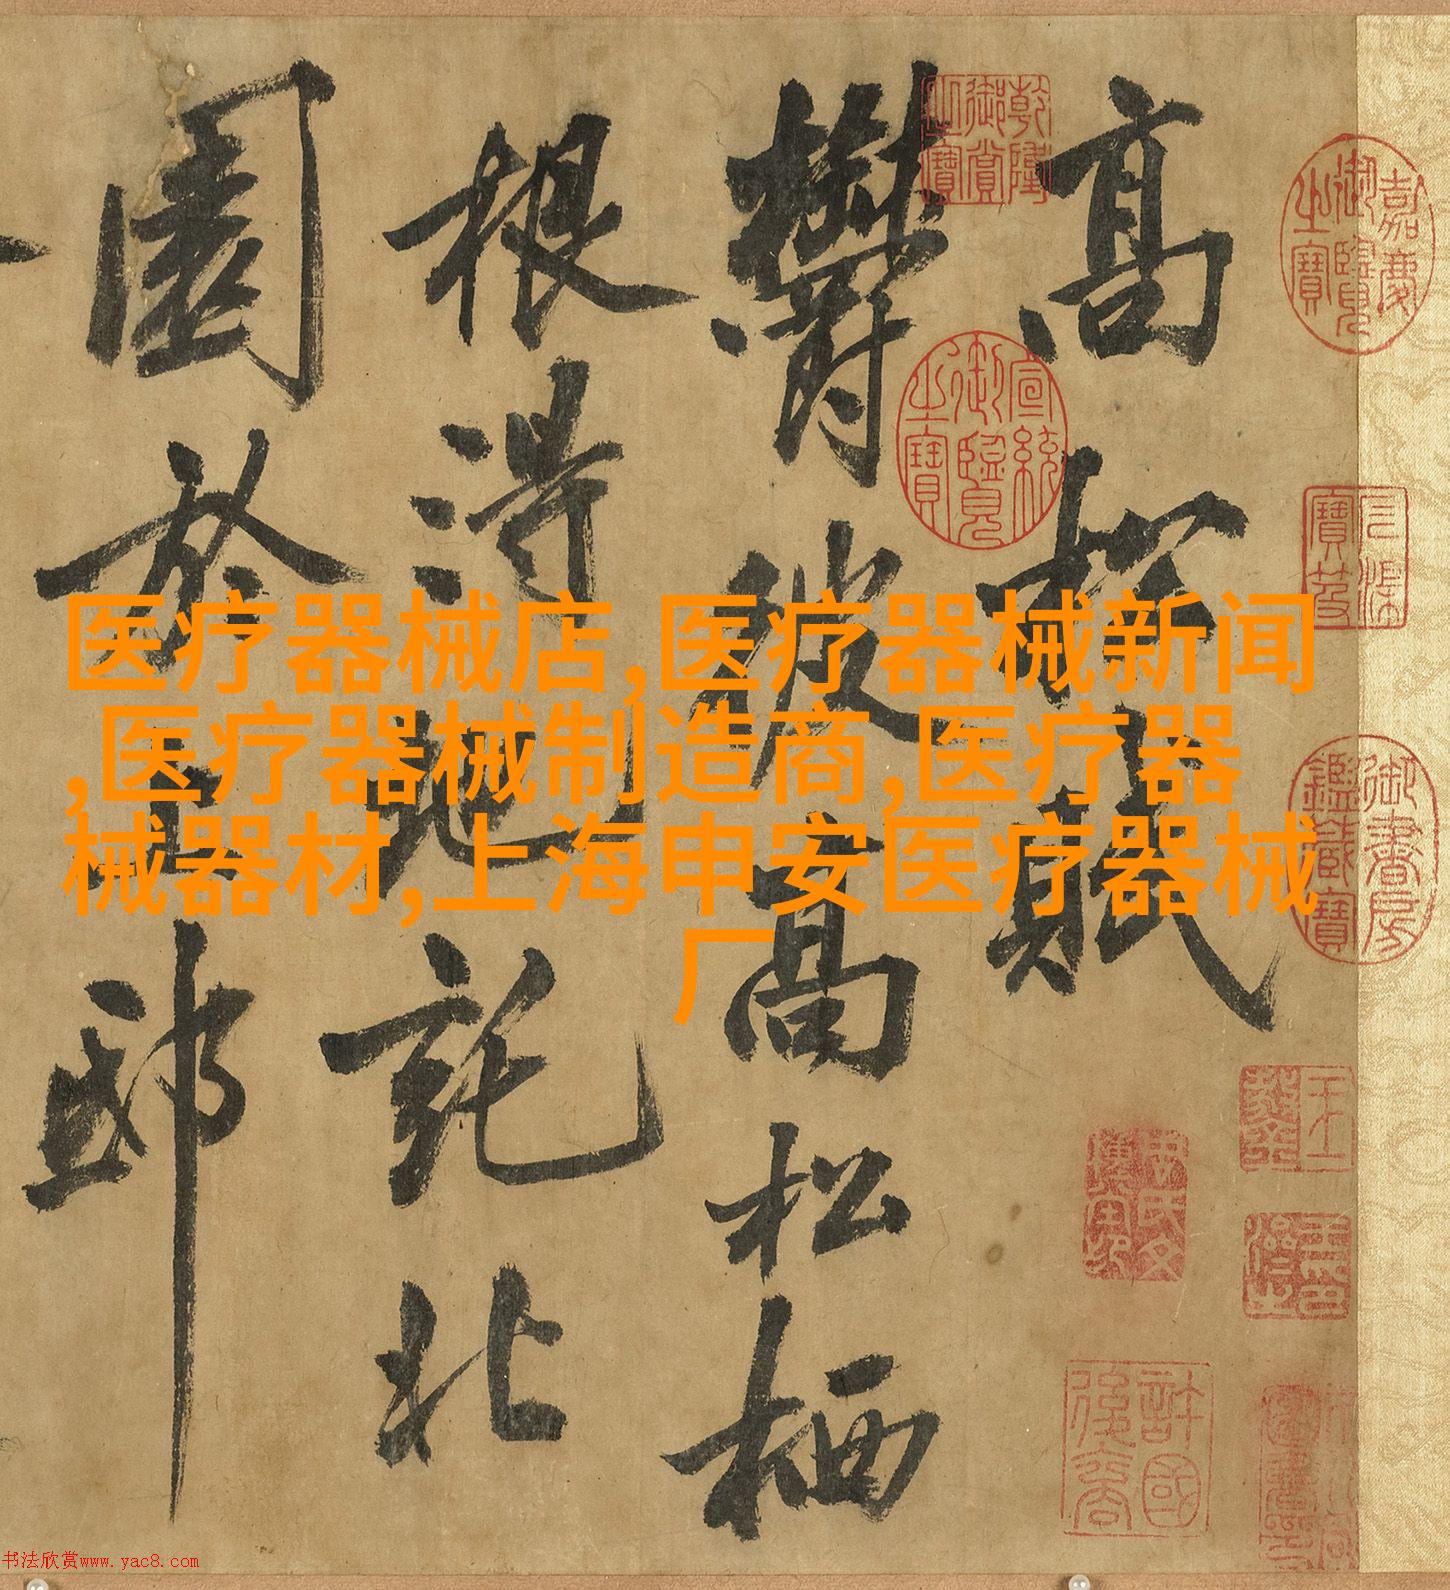 高松賦
欝彼高松栖
根得地託北
園於上邸
医疗器械店,医疗器械新闻
,医疗器械制造商,医疗器
械器材,上海申安医疗器械
厂
嘉慶御覽之寶
乾隆御賞之寶
宣統御覽之寶
石渠寶笈
御書房鑑藏寶
許國後裔
书法欣赏www.yac8.com